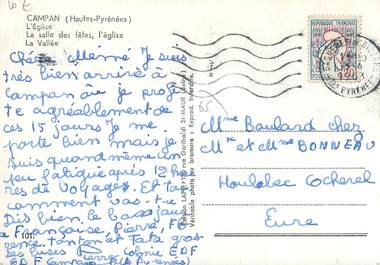 60 E
CAMPAN (Hautes-Pyrénées)
L'Église
La salle des fêtes, l'église
La Vallée
Chère Mémé Je suis
très bien arrivé à
Campan où je profi
te agréablement de
ces 15 jours Je me
porte bien mais je
suis quand même un
peu fatigué après 12 heu
res de voyages. Et Toi
comment vas-tu.
Dis bien le bonjour
a Françoise, Pierre, Flo
rence, tonton et Tata gros
ses bises Pierre Colonie EDF
Campan (Htes Pyrénées)
101.
65
REPUBLIQUE FRANÇAISE
Mme Boulard chez
Mr et Mme BONNEAU
Houlbec Cocherel
Eure